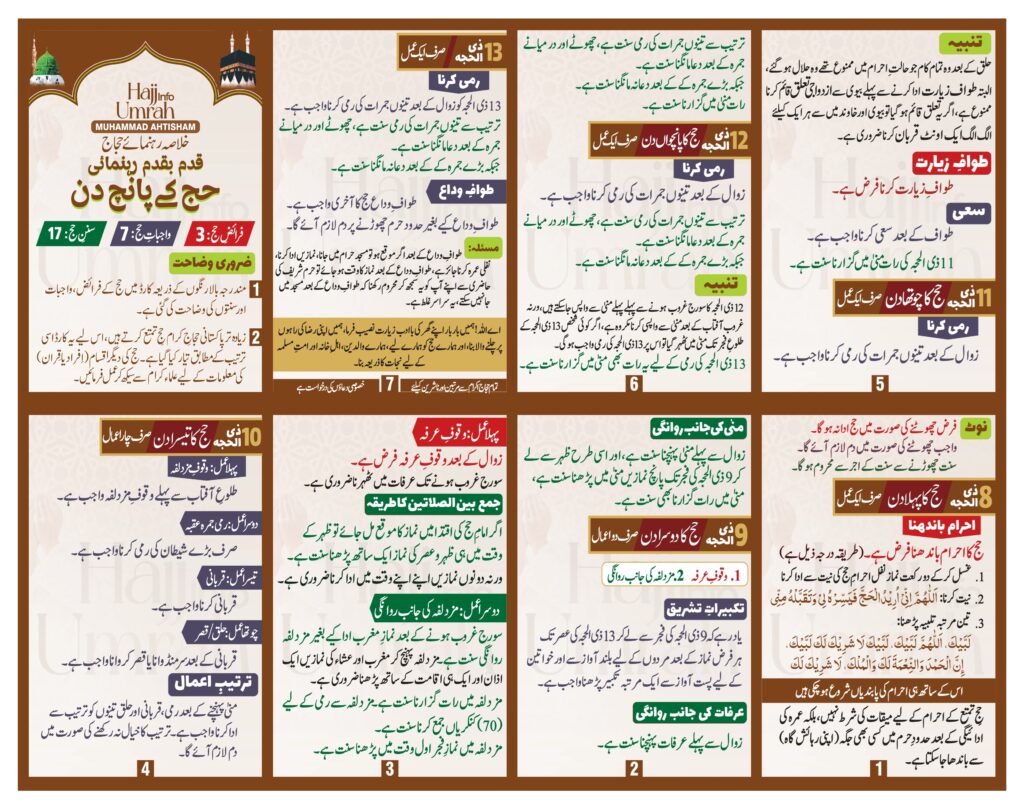 Hajj info
Umrah
MUHAMMAD AHTISHAM
خلاصہ رہنمائے حجاج
قدم بقدم رہنمائی
حج کے پانچ دن
فرائض حج: 3
واجباتِ حج: 7
سنن حج: 17
ضروری وضاحت
1 مندرجہ بالا رنگوں کے ذریعہ کارڈ میں حج کے فرائض، واجبات
اور سنتوں کی وضاحت کی گئی ہے۔
2 زیادہ تر پاکستانی حجاج کرام حج تمتع کرتے ہیں، اس لیے یہ کارڈ اسی
ترتیب کے مطابق تیار کیا گیا ہے۔ حج کی دیگر اقسام (افراد یا قران)
کی معلومات کے لیے علماء کرام سے سیکھ کر عمل فرمائیں۔
نوٹ
فرض چھوٹنے کی صورت میں حج ادا نہ ہوگا۔
واجب چھوٹنے کی صورت میں دم لازم آئے گا۔
سنت چھوڑنے سے سنت کے اجر سے محروم ہوگا۔
8 ذی الحجہ حج کا پہلا دن صرف ایک عمل
احرام باندھنا
حج کا احرام باندھنا فرض ہے۔ (طریقہ درجہ ذیل ہے)
1. غسل کر کے دو رکعت نماز نفل احرامِ حج کی نیت سے ادا کرنا
2. نیت کرنا: اَللّٰهُمَّ اِنِّیْ اُرِیْدُ الْحَجَّ فَیَسِّرْهُ لِیْ وَتَقَبَّلْهُ مِنِّیْ
3. تین مرتبہ تلبیہ پڑھنا:
لَبَّیْكَ، اَللّٰهُمَّ لَبَّیْكَ، لَبَّیْكَ لَا شَرِیْكَ لَكَ لَبَّیْكَ،
اِنَّ الْحَمْدَ وَالنِّعْمَةَ لَكَ وَالْمُلْكَ، لَا شَرِیْكَ لَكَ
اس کے ساتھ ہی احرام کی پابندیاں شروع ہو چکی ہیں
حج تمتع کے احرام کے لیے میقات کی شرط نہیں، بلکہ عمرہ کی
ادائیگی کے بعد حدودِ حرم میں کسی بھی جگہ (اپنی رہائش گاہ)
سے باندھا جا سکتا ہے۔
1
منی کی جانب روانگی
زوال سے پہلے منی پہنچنا سنت ہے، اور اسی طرح ظہر سے لے
کر 9 ذی الحجہ کی فجر تک پانچ نمازیں منی میں پڑھنا سنت ہے،
منی میں رات گزارنا بھی سنت ہے۔
9 ذی الحجہ حج کا دوسرا دن صرف دو اعمال
1. وقوفِ عرفہ 2. مزدلفہ کی جانب روانگی
تکبیراتِ تشریق
یاد رہے کہ 9 ذی الحجہ کی فجر سے لے کر 13 ذی الحجہ کی عصر تک
ہر فرض نماز کے بعد مردوں کے لیے بلند آواز سے اور خواتین
کے لیے پست آواز سے ایک مرتبہ تکبیر پڑھنا واجب ہے۔
عرفات کی جانب روانگی
زوال سے پہلے عرفات پہنچنا سنت ہے۔
2
پہلا عمل: وقوفِ عرفہ
زوال کے بعد وقوفِ عرفہ فرض ہے۔
سورج غروب ہونے تک عرفات میں ٹھہرنا ضروری ہے۔
جمع بین الصلاتین کا طریقہ
اگر امام حج کی اقتدا میں نماز کا موقع مل جائے تو ظہر کے
وقت میں ہی ظہر و عصر کی نماز ایک ساتھ پڑھنا سنت ہے۔
ورنہ دونوں نمازیں اپنے اپنے وقت میں ادا کرنا ضروری ہے۔
دوسرا عمل: مزدلفہ کی جانب روانگی
سورج غروب ہونے کے بعد نمازِ مغرب ادا کیے بغیر مزدلفہ
روانگی سنت ہے۔ مزدلفہ پہنچ کر مغرب اور عشاء کی نمازیں ایک
اذان اور ایک ہی اقامت کے ساتھ پڑھنا ضروری ہے۔
مزدلفہ میں رات گزارنا سنت ہے۔ مزدلفہ سے رمی کے لیے
(70) کنکریاں جمع کرنا سنت ہے۔
مزدلفہ میں نمازِ فجر اول وقت میں پڑھنا سنت ہے۔
3
10 ذی الحجہ حج کا تیسرا دن صرف چار اعمال
پہلا عمل: وقوفِ مزدلفہ
طلوعِ آفتاب سے پہلے وقوفِ مزدلفہ واجب ہے۔
دوسرا عمل: رمی جمرہ عقبہ
صرف بڑے شیطان کی رمی کرنا واجب ہے۔
تیسرا عمل: قربانی
قربانی کرنا واجب ہے۔
چوتھا عمل: حلق/قصر
قربانی کے بعد سر منڈوانا یا قصر کروانا واجب ہے۔
ترتیبِ اعمال
منی پہنچنے کے بعد رمی، قربانی اور حلق تینوں کو ترتیب سے
ادا کرنا واجب ہے۔ ترتیب کا خیال نہ رکھنے کی صورت میں
دم لازم آئے گا۔
4
تنبیہ
حلق کے بعد وہ تمام کام جو حالتِ احرام میں ممنوع تھے وہ حلال ہوگئے،
البتہ طوافِ زیارت ادا کرنے سے پہلے بیوی سے ازدواجی تعلق قائم کرنا
ممنوع ہے، اگر یہ تعلق قائم ہوگیا تو بیوی اور خاوند میں سے ہر ایک کیلئے
الگ الگ ایک اونٹ قربان کرنا ضروری ہے۔
طوافِ زیارت
طوافِ زیارت کرنا فرض ہے۔
سعی
طواف کے بعد سعی کرنا واجب ہے۔
11 ذی الحجہ کی رات منی میں گزارنا سنت ہے۔
11 ذی الحجہ حج کا چوتھا دن صرف ایک عمل
رمی کرنا
زوال کے بعد تینوں جمرات کی رمی کرنا واجب ہے۔
5
ترتیب سے تینوں جمرات کی رمی سنت ہے، چھوٹے اور درمیانے
جمرہ کے بعد دعا مانگنا سنت ہے۔
جبکہ بڑے جمرہ کے بعد دعا نہ مانگنا سنت ہے۔
رات منی میں گزارنا سنت ہے۔
12 ذی الحجہ حج کا پانچواں دن صرف ایک عمل
رمی کرنا
زوال کے بعد تینوں جمرات کی رمی کرنا واجب ہے۔
ترتیب سے تینوں جمرات کی رمی سنت ہے، چھوٹے اور درمیانے
جمرہ کے بعد دعا مانگنا سنت ہے۔
جبکہ بڑے جمرہ کے بعد دعا نہ مانگنا سنت ہے۔
تنبیہ
12 ذی الحجہ کا سورج غروب ہونے سے پہلے پہلے منی سے واپس جا سکتے ہیں، ورنہ
غروبِ آفتاب کے بعد منی سے واپسی کرنا مکروہ ہے، اگر کوئی شخص 13 ذی الحجہ کے
طلوعِ فجر تک منی میں ٹھہر گیا تو اس پر 13 ذی الحجہ کی رمی واجب ہوگی۔
13 ذی الحجہ کی رمی کے لیے یہ رات بھی منی میں گزارنا سنت ہے۔
6
13 ذی الحجہ صرف ایک عمل
رمی کرنا
13 ذی الحجہ کو زوال کے بعد تینوں جمرات کی رمی کرنا واجب ہے۔
ترتیب سے تینوں جمرات کی رمی سنت ہے، چھوٹے اور درمیانے
جمرہ کے بعد دعا مانگنا سنت ہے۔
جبکہ بڑے جمرہ کے بعد دعا نہ مانگنا سنت ہے۔
طوافِ وداع
طوافِ وداع حج کا آخری واجب ہے۔
طوافِ وداع کیے بغیر حدودِ حرم چھوڑنے پر دم لازم آئے گا۔
مسئلہ: طوافِ وداع کے بعد اگر موقع ہو تو مسجد حرام میں جانا، نمازیں ادا کرنا،
نفلی عمرہ کرنا جائز ہے، طوافِ وداع کے بعد نماز کا وقت ہو جائے تو حرم شریف کی
حاضری سے اپنے آپ کو یہ سمجھ کر محروم رکھنا کہ طوافِ وداع کے بعد مسجد میں
جا نہیں سکتے، یہ سراسر غلط ہے۔
اے اللہ! ہمیں بار بار اپنے گھر کی باادب زیارت نصیب فرما، ہمیں اپنی رضا کی راہوں
پر چلنے والا بنا، اور ہمارے حج کو ہمارے لیے، ہمارے والدین، اہل خانہ اور امتِ مسلمہ
کے لیے نجات کا ذریعہ بنا۔
تمام حجاج کرام سے مرتبین اور ناشرین کیلئے 7 خصوصی دعاؤں کی درخواست ہے